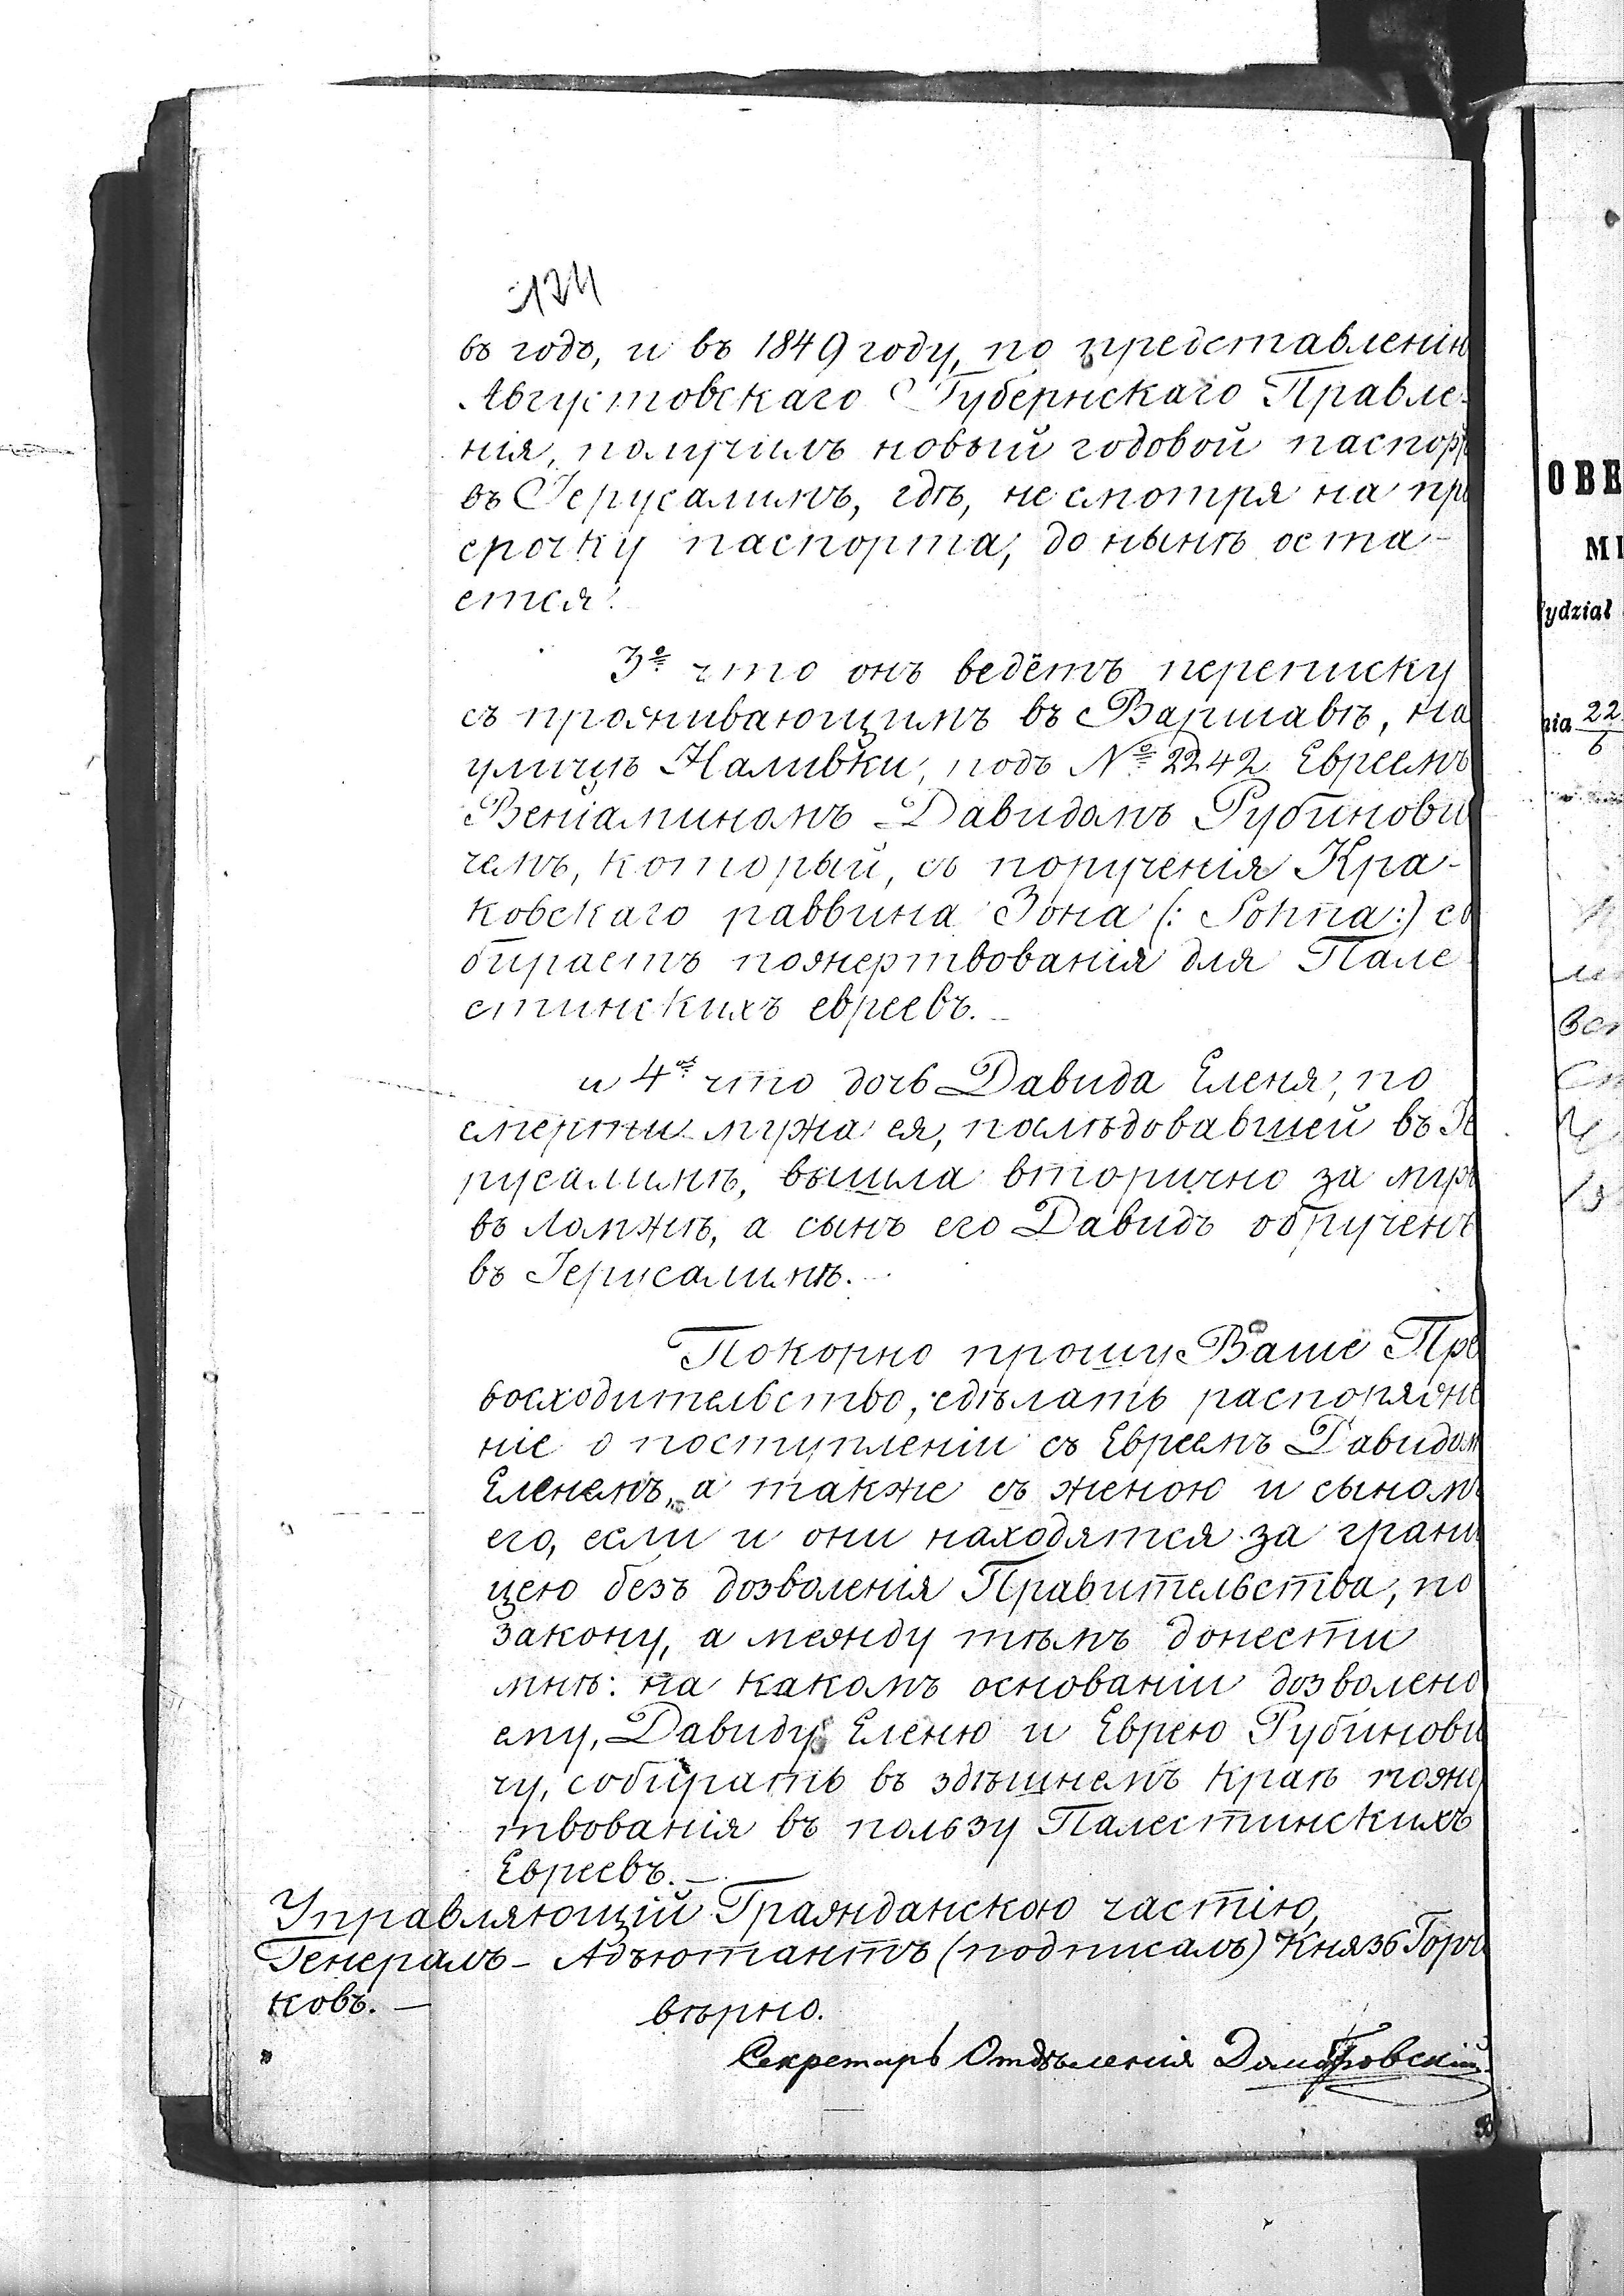 124
въ годъ, и въ 1849 году, по представленію
Августовскаго Губернскаго Правле-
нія, получилъ новый годовой паспор
въ Іерусалимъ, гдѣ, не смотря на про
срочку паспорта, до нынѣ оста-
ется.
3º что онъ ведётъ переписку
съ проживающимъ въ Варшавѣ, на
улицѣ Наливки, подъ № 2242 Евреемъ
Веніаминомъ Давидомъ Рубинови
чемъ, который, съ порученія Кра-
ковскаго раввина Зона (: Sohna :) со
бираетъ пожертвованія для Пале
стинскихъ евреевъ.
и 4º что дочь Давида Еленя, по
смерти мужа ея, послѣдовавшей въ Іе
русалимѣ, вышла вторично за муж
въ Ломжѣ, а сынъ его Давидъ обрученъ
въ Іерусалимѣ.
Покорно прошу Ваше Пре
восходительство, сдѣлать распоряже
ніе о поступленіи съ Евреемъ Давидом
Еленемъ, а также съ женою и сыномъ
его, если и они находятся за грани
цею безъ дозволенія Правительства, по
закону, а между тѣмъ донести
мнѣ: на какомъ основаніи дозволено
ему, Давиду Еленю и Еврею Рубинови
чу, собирать въ здѣшнемъ краѣ пожер
твованія въ пользу Палестинскихъ
Евреевъ.—
Управляющій Гражданскою частію,
Генералъ-Адъютантъ (подписалъ) Князь Горча
ковъ.—
вѣрно.
Секретарь Отдѣленія Домбровскій
ОВЕ
MI
ydział
nia 22
6